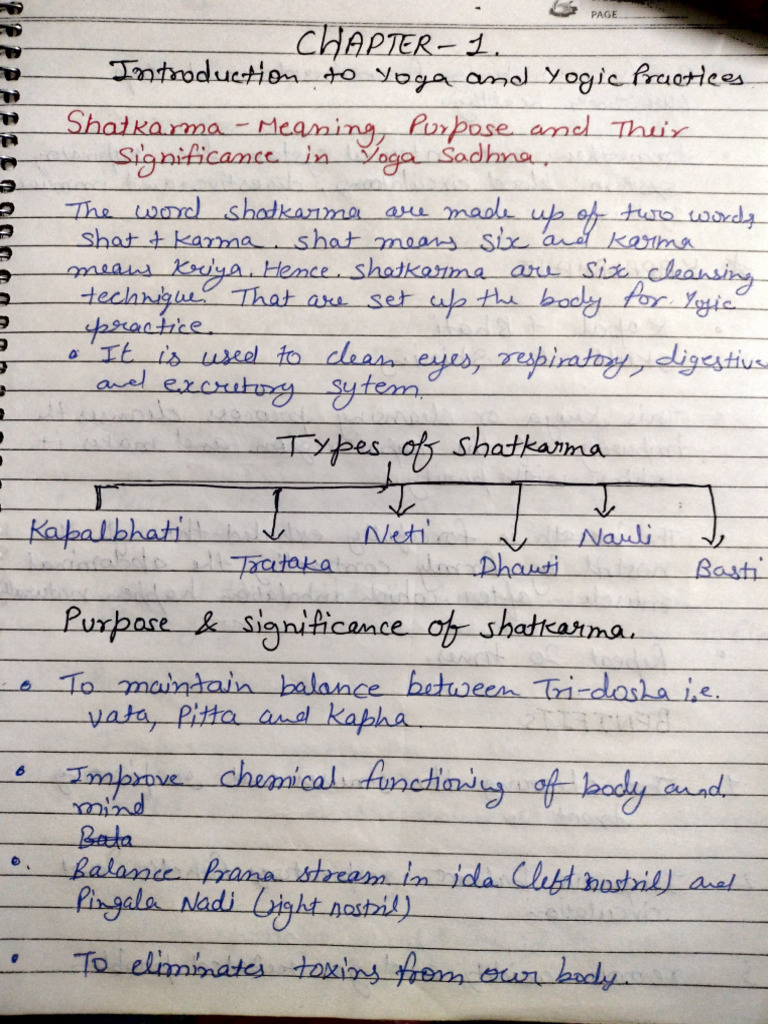 PAGE
CHAPTER-1.
Introduction to Yoga and Yogic Practices
Shatkarma - Meaning, Purpose and Their
Significance in Yoga Sadhna.
The word shatkarma are made up of two words
Shat + Karma. Shat means six and Karma
means Kriya. Hence. Shatkarma are six cleansing
technique. That are set up the body for Yogic
practice.
• It is used to clean eyes, respiratory, digestive
and excretory sytem.
Types of Shatkarma
Kapalbhati Neti Nauli
Trataka Dhauti Basti
Purpose & significance of shatkarma.
• To maintain balance between Tri-dosha i.e.
vata, Pitta and Kapha.
• Improve chemical functioning of body and.
mind
Bata
• Balance Prana stream in ida (left nostril) and
Pingala Nadi (right nostril)
• To eliminates toxins from our body.